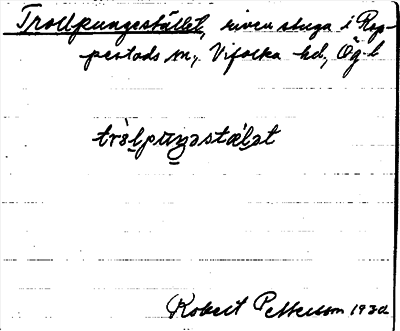 Trollpungestället, riven stuga i Rap-
pestads sn, Vifolka hd, Ög. l
tròlpuŋəstǽlət
Robert Petterson 1932